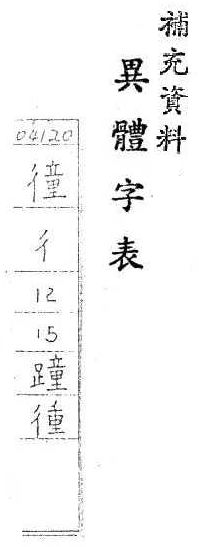 補充資料
異體字表
04120
徸
彳
12
15
蹱
徸